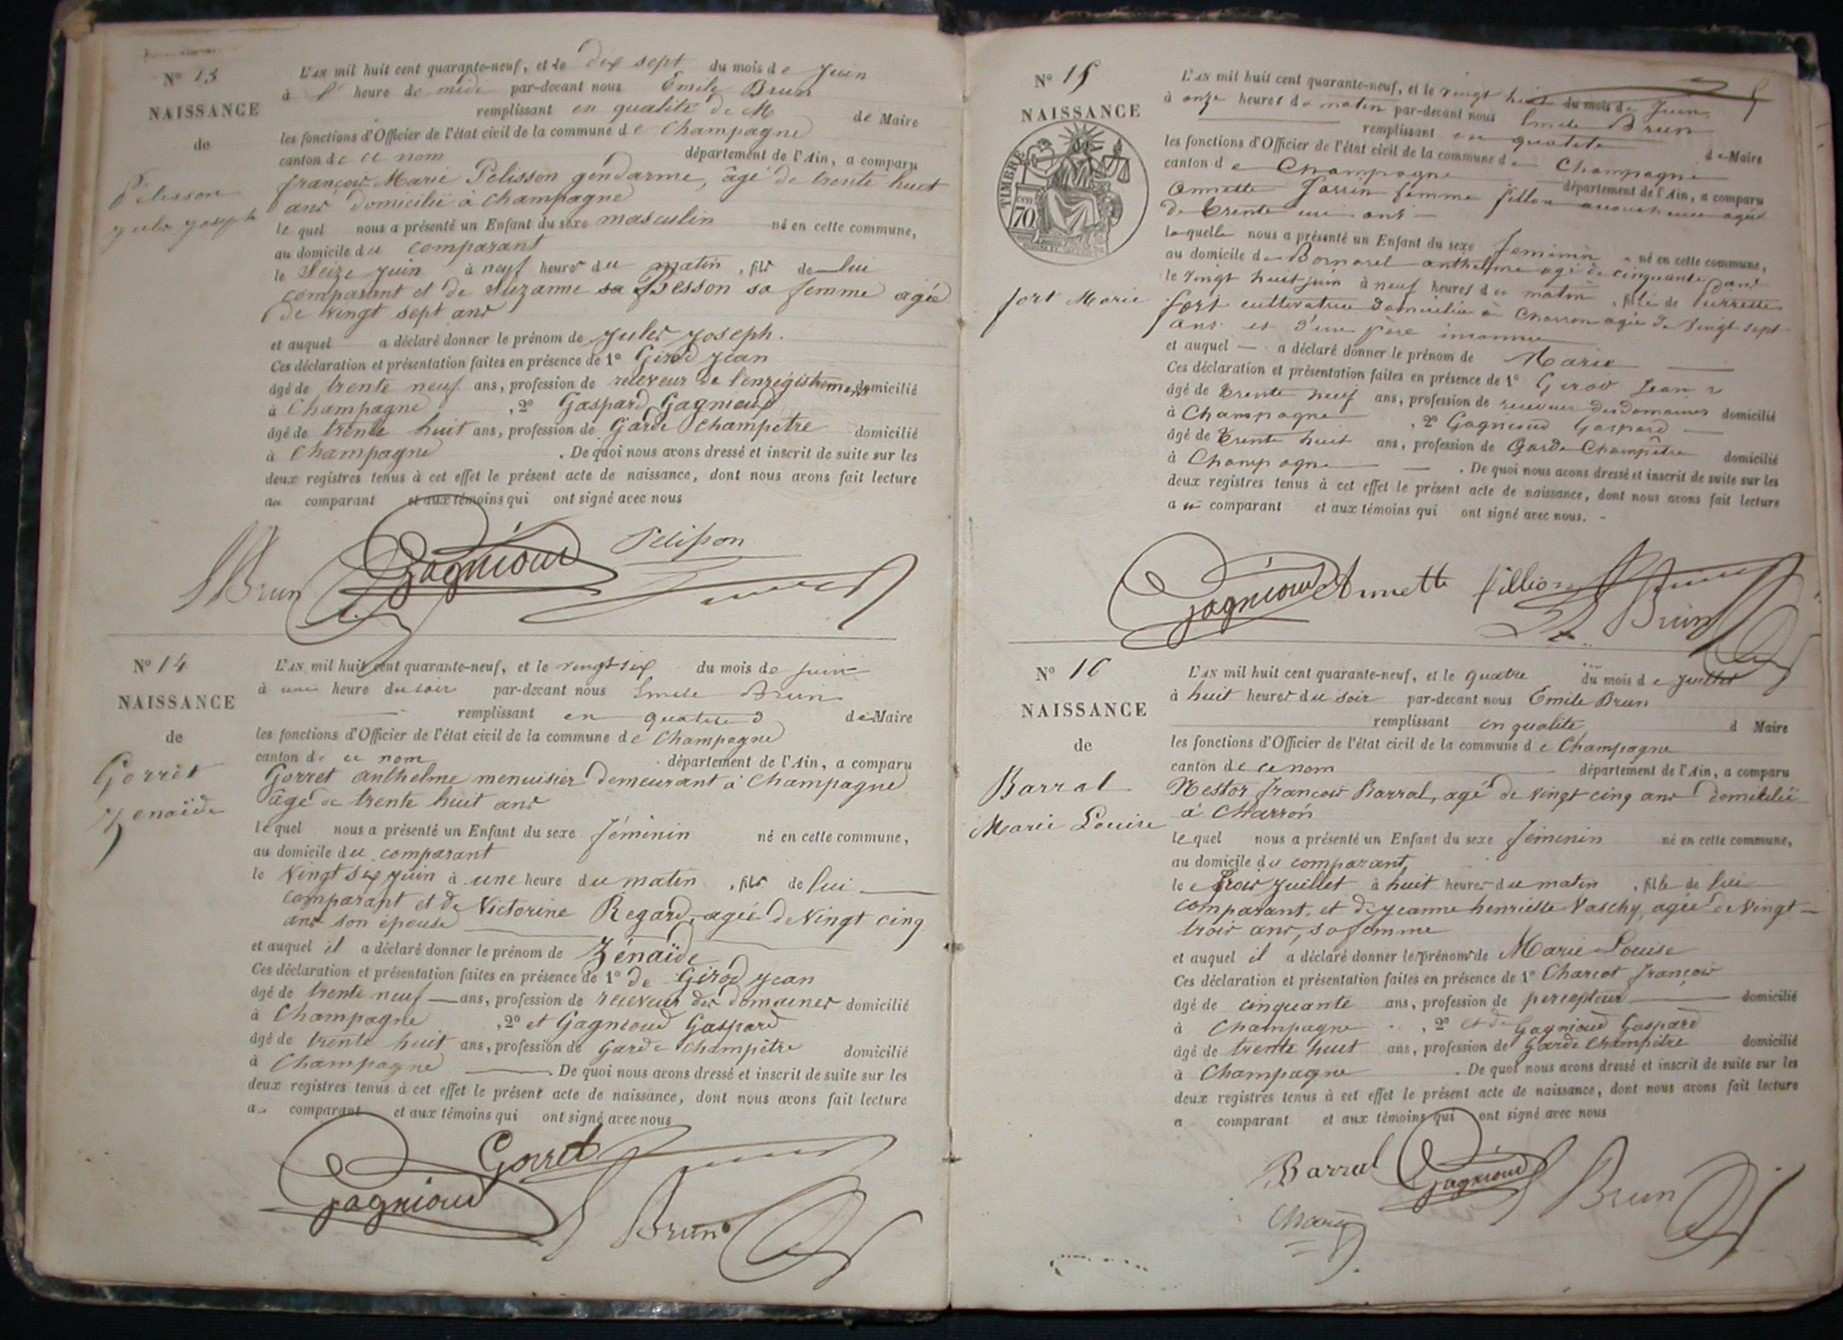 N° 13
NAISSANCE
de
Pelisson
Jules Joseph
L'AN mil huit cent quarante-neuf, et le dix sept du mois de Juin
à heure de midi par-devant nous Emile Brun
remplissant en qualité de M de Maire
les fonctions d'Officier de l'état civil de la commune de Champagne
canton de ce nom département de l'Ain, a comparu
françois Marie Pelisson gendarme, âgé de trente huit
ans domicilié à Champagne
le quel nous a présenté un Enfant du sexe masculin né en cette commune,
au domicile du comparant
le Seize Juin à neuf heures du matin, fils de lui
comparant et de Suzanne Besson sa femme agée
de vingt sept ans
et auquel a déclaré donner le prénom de Jules Joseph.
Ces déclaration et présentation faites en présence de 1° Girod Jean
âgé de trente neuf ans, profession de receveur de l'enregistrement domicilié
à Champagne, 2° Gaspard Gagnioud
âgé de trente huit ans, profession de Garde Champêtre domicilié
à Champagne. De quoi nous avons dressé et inscrit de suite sur les
deux registres tenus à cet effet le présent acte de naissance, dont nous avons fait lecture
au comparant et aux témoins qui ont signé avec nous
Pelisson
Gagnioud
Brun
N° 14
NAISSANCE
de
Gorret
Zénaïde
L'AN mil huit cent quarante-neuf, et le vingt six du mois de Juin
à une heure du soir par-devant nous Emile Brun
remplissant en qualité d de Maire
les fonctions d'Officier de l'état civil de la commune de Champagne
canton de ce nom département de l'Ain, a comparu
Gorret anthelme menuisier demeurant à Champagne
âgé de trente huit ans
le quel nous a présenté un Enfant du sexe féminin né en cette commune,
au domicile du comparant
le vingt six Juin à une heure du matin, fils de lui
comparant et de Victorine Regard, agée de vingt cinq
ans son épouse
et auquel il a déclaré donner le prénom de Zénaïde
Ces déclaration et présentation faites en présence de 1° de Girod Jean
âgé de trente neuf ans, profession de receveur des domaines domicilié
à Champagne, 2° et Gagnioud Gaspard
âgé de trente huit ans, profession de garde champêtre domicilié
à Champagne. De quoi nous avons dressé et inscrit de suite sur les
deux registres tenus à cet effet le présent acte de naissance, dont nous avons fait lecture
au comparant et aux témoins qui ont signé avec nous
Gorret
Gagnioud
Brun
N° 15
NAISSANCE
TIMBRE
70
fort Marie
L'AN mil huit cent quarante-neuf, et le vingt huit du mois de Juin
à onze heures du matin par-devant nous Emile Brun
remplissant en qualité de Maire
les fonctions d'Officier de l'état civil de la commune de Champagne
canton de Champagne département de l'Ain, a comparu
femme fillion accoucheuse agée
de trente un ans
laquelle nous a présenté un Enfant du sexe feminin né en cette commune,
au domicile de Bornarel anthelme agé de cinquante ans
le vingt huit juin à neuf heures du matin, fille de Pierrette
fort cultivatrice domiciliée à Charron agée de vingt sept
ans et d'un père inconnu
et auquel a déclaré donner le prénom de Marie
Ces déclaration et présentation faites en présence de 1° Girod Jean
âgé de trente neuf ans, profession de receveur des domaines domicilié
à Champagne, 2° Gagnioud Gaspard
âgé de trente huit ans, profession de Garde Champêtre domicilié
à Champagne. De quoi nous avons dressé et inscrit de suite sur les
deux registres tenus à cet effet le présent acte de naissance, dont nous avons fait lecture
a comparant et aux témoins qui ont signé avec nous.
Gagnioud Annette fillion
Brun
N° 16
NAISSANCE
de
Barral
Marie Louise
L'AN mil huit cent quarante-neuf, et le quatre du mois de Juillet
à huit heures du soir par-devant nous Emile Brun
remplissant en qualité d Maire
les fonctions d'Officier de l'état civil de la commune de Champagne
canton de ce nom département de l'Ain, a comparu
Nestor françois Barral, agé de vingt cinq ans domicilié
à Charron
le quel nous a présenté un Enfant du sexe féminin né en cette commune,
au domicile du comparant
le trois Juillet à huit heures du matin, fille de lui
comparant, et de Jeanne henriette Vaschy, agée de vingt
trois ans, sa femme
et auquel il a déclaré donner le prénoms de Marie Louise
Ces déclaration et présentation faites en présence de 1° Charcot françois
âgé de cinquante ans, profession de percepteur domicilié
à Champagne, 2° et de Gagnioud Gaspard
âgé de trente huit ans, profession de Garde Champêtre domicilié
à Champagne. De quoi nous avons dressé et inscrit de suite sur les
deux registres tenus à cet effet le présent acte de naissance, dont nous avons fait lecture
a comparant et aux témoins qui ont signé avec nous
Barral
Gagnioud
Brun